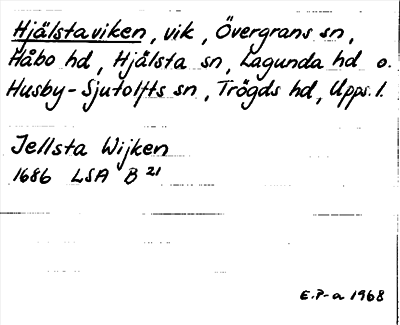 Hjälstaviken, vik, Övergrans sn,
Håbo hd, Hjälsta sn, Lagunda hd o.
Husby-Sjutolfts sn, Trögds hd, Upps. l.
Jellsta Wijken
1686 LSA B 21
E.P-a 1968